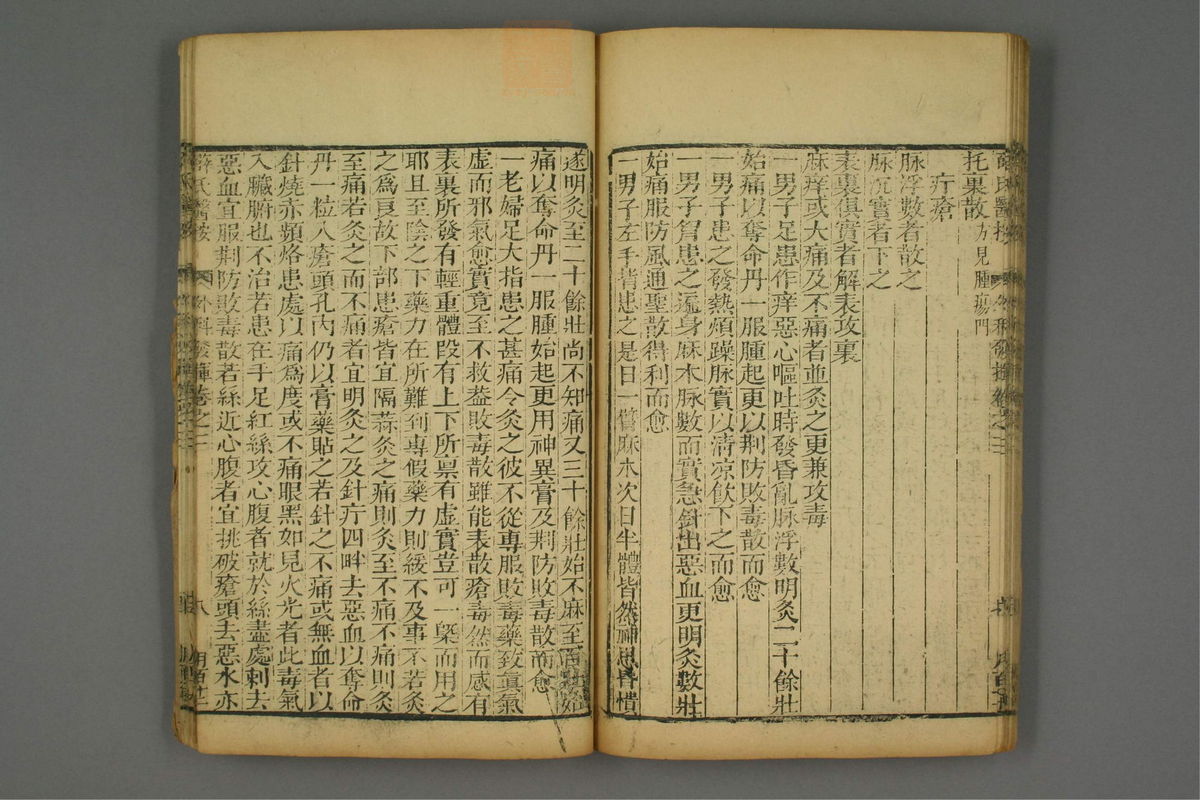 薛氏醫按 外科發揮卷之三
托裏散方見腫瘍門
疔瘡
脉浮數者散之
脉沉實者下之
表裏俱實者解表攻裏
麻痒或大痛及不痛者並灸之更兼攻毒
一男子足患作痒惡心嘔吐時發昏亂脉浮數明灸二十餘壯
始痛以奪命丹一服腫起更以荆防敗毒散而愈
一男子患之發熱煩躁脉實以清凉飲下之而愈
一男子胷患之遍身麻木脉數而實急針出惡血更明灸數壯
始痛服防風通聖散得利而愈
一男子左手背患之是日一臂麻木次日半體皆然神思昏憒
遂明灸至二十餘壯尚不知痛又三十餘壯始不麻至百壯始
痛以奪命丹一服腫始起更用神異膏及荆防敗毒散而愈
一老婦足大指患之甚痛令灸之彼不從專服敗毒藥致眞氣
虛而邪氣愈實竟至不救葢敗毒散雖能表散瘡毒然而感有
表裏所發有輕重體段有上下所禀有虛實豈可一槩而用之
耶且至陰之下藥力在所難到專假藥力則緩不及事不若灸
之爲良故下部患瘡皆宜隔蒜灸之痛則灸至不痛不痛則灸
至痛若灸之而不痛者宜明灸之及針疔四畔去惡血以奪命
丹一粒入瘡頭孔內仍以膏藥貼之若針之不痛或無血者以
針燒赤頻烙患處以痛爲度或不痛眼黑如見火光者此毒氣
入臟腑也不治若患在手足紅絲攻心腹者就於絲盡處刺去
惡血宜服荆防敗毒散若絲近心腹者宜挑破瘡頭去惡水亦
薛氏醫按 外科發揮卷之三 八